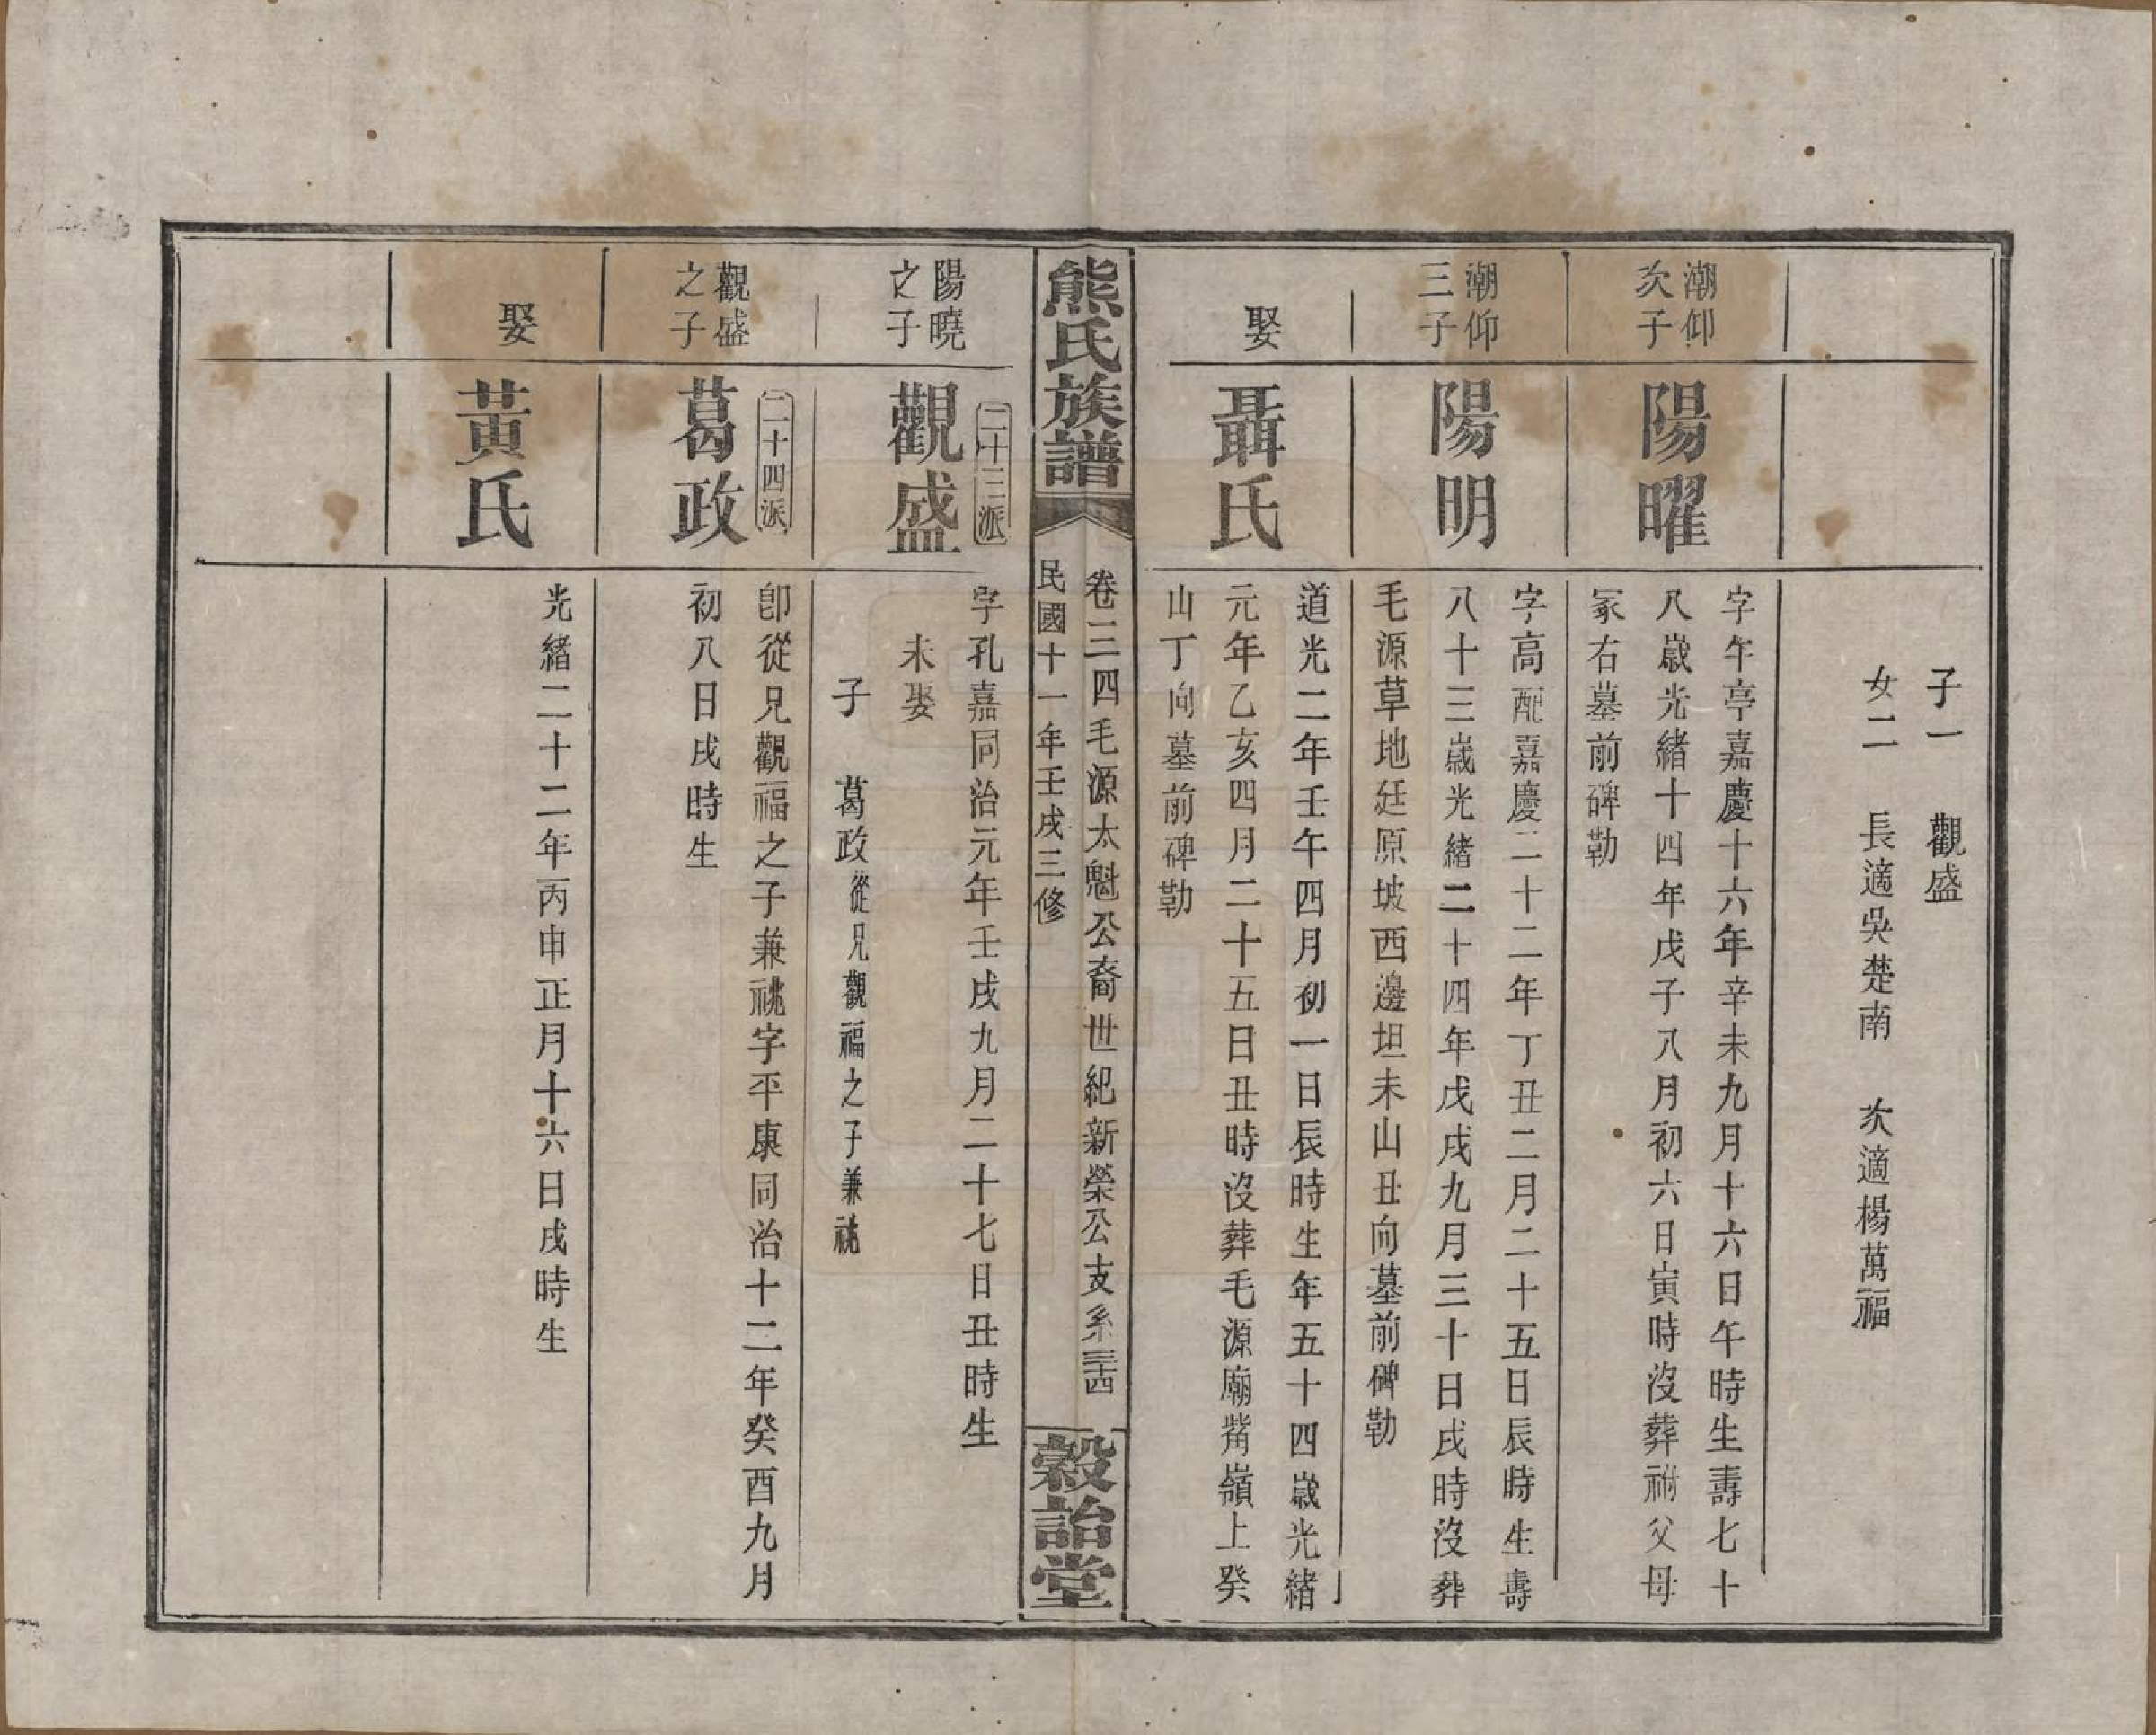 子一　觀盛
女二　長適吳楚南　次適楊萬福
潮仰
次子
陽曜
字午亭嘉慶十六年辛未九月十六日午時生壽七十
八歲光緒十四年戊子八月初六日寅時沒葬祔父母
冢右墓前碑勒
潮仰
三子
陽明
字高配嘉慶二十二年丁丑二月二十五日辰時生壽
八十三歲光緒二十四年戊戌九月三十日戌時沒葬
毛源草地廷原坡西邊坦未山丑向墓前碑勒
娶
聶氏
道光二年壬午四月初一日辰時生年五十四歲光緒
元年乙亥四月二十五日丑時沒葬毛源廟嘴嶺上癸
山丁向墓前碑勒
熊氏族譜
卷三四毛源太魁公裔世紀新榮公支系三十四
民國十一年壬戌三修
穀詒堂
陽曉
之子
二十三派
觀盛
字孔嘉同治元年壬戌九月二十七日丑時生
未娶
子　葛政從兄觀福之子兼祧
觀盛
之子
二十四派
葛政
卽從兄觀福之子兼祧字平康同治十二年癸酉九月
初八日戌時生
娶
黃氏
光緒二十二年丙申正月十六日戌時生